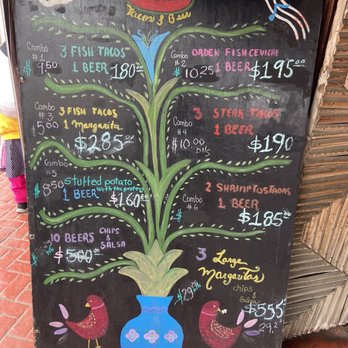 Tacos & Beer
Combo # 1
$ 9.50
3 FISH TACOS
1 BEER 180⁰⁰
Combo # 2
$ 10.25
ORDEN FISH CEVICHE
1 BEER $195⁰⁰
Combo # 3
3 FISH TACOS
1 Margarita
$285⁰⁰
Combo # 4
$10.00
3 STEAK TACOS
1 BEER
$190
Combo # 5
$ 8.50
stuffed potato
1 BEER $160⁰⁰
Combo # 6
2 SHRIMP TOSTADAS
1 BEER
$185⁰⁰
10 BEERS CHIPS & SALSA
$500⁰⁰
3 Large Margaritas
chips & salsa
$29
$555
29.2